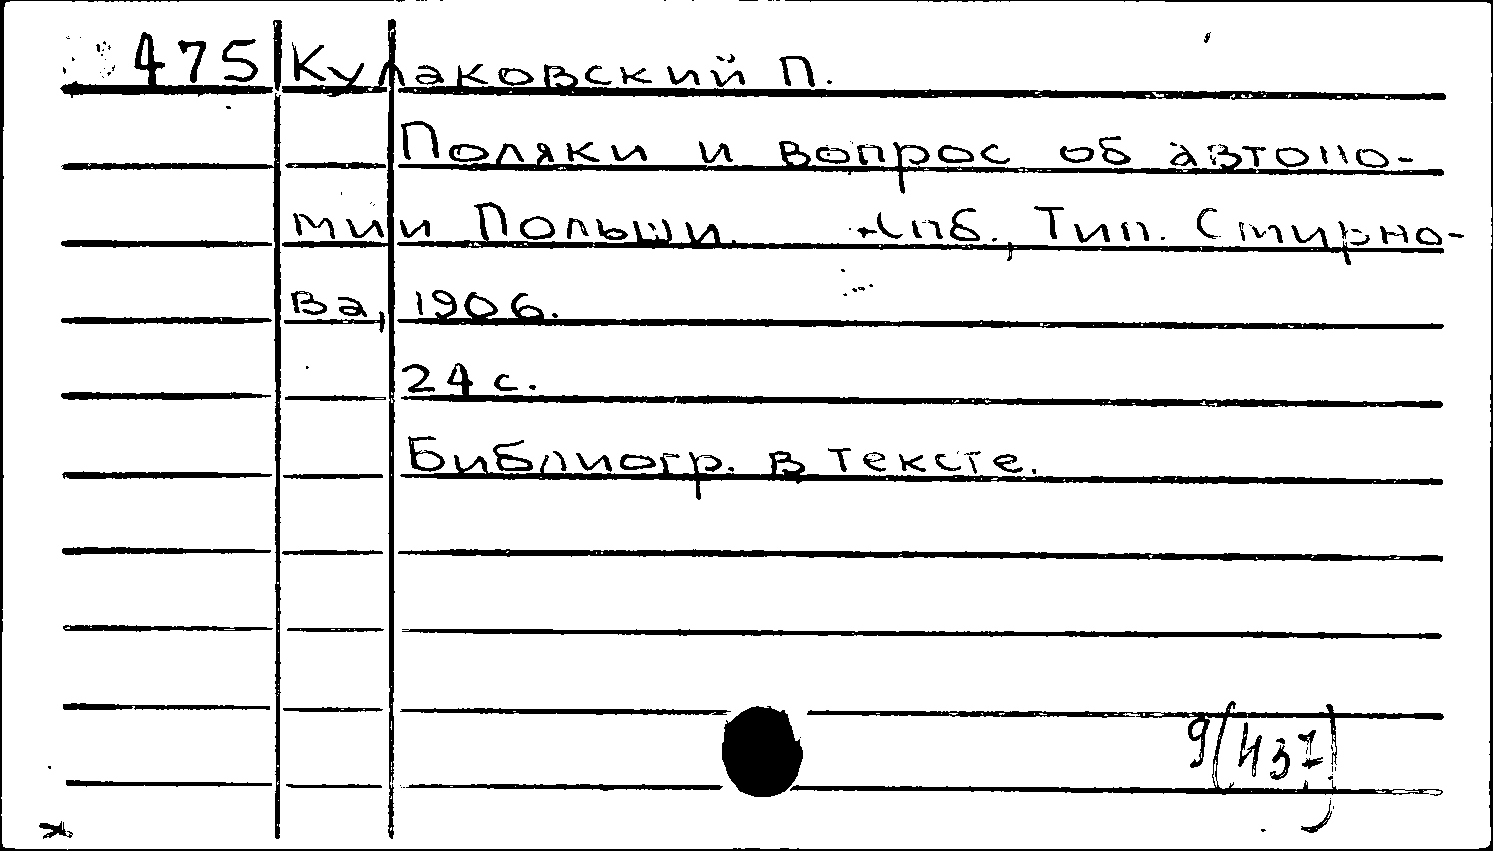 475 Кулаковский П.
Поляки и вопрос об автоно-
мии Польши. Спб., Тип. Смирно-
ва, 1906.
24 с.
Библиогр. в тексте.
9(437)